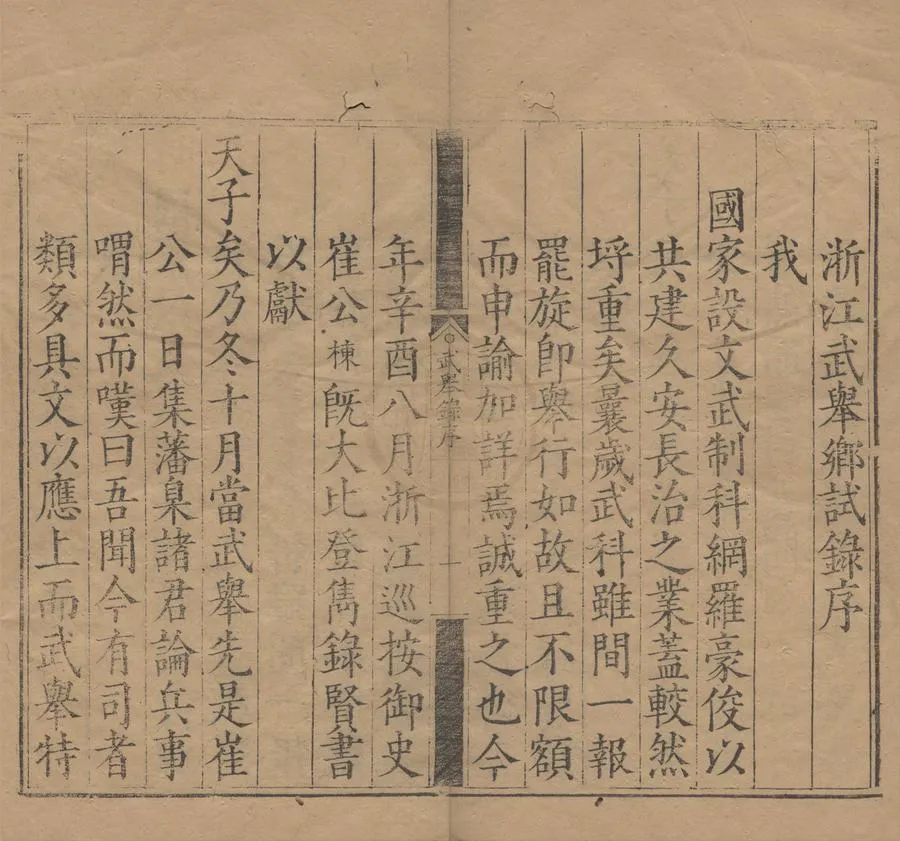 浙江武舉鄉試錄序
我
國家設文武制科網羅豪俊以
共建久安長治之業蓋較然
埒重矣曩歲武科雖間一報
罷旋卽舉行如故且不限額
而申諭加詳焉誠重之也今
武舉錄序
一
年辛酉八月浙江巡按御史
崔公棟旣大比登雋錄賢書
以獻
天子矣乃冬十月當武舉先是崔
公一日集藩臬諸君論兵事
喟然而嘆曰吾聞今有司者
類多具文以應上而武舉特